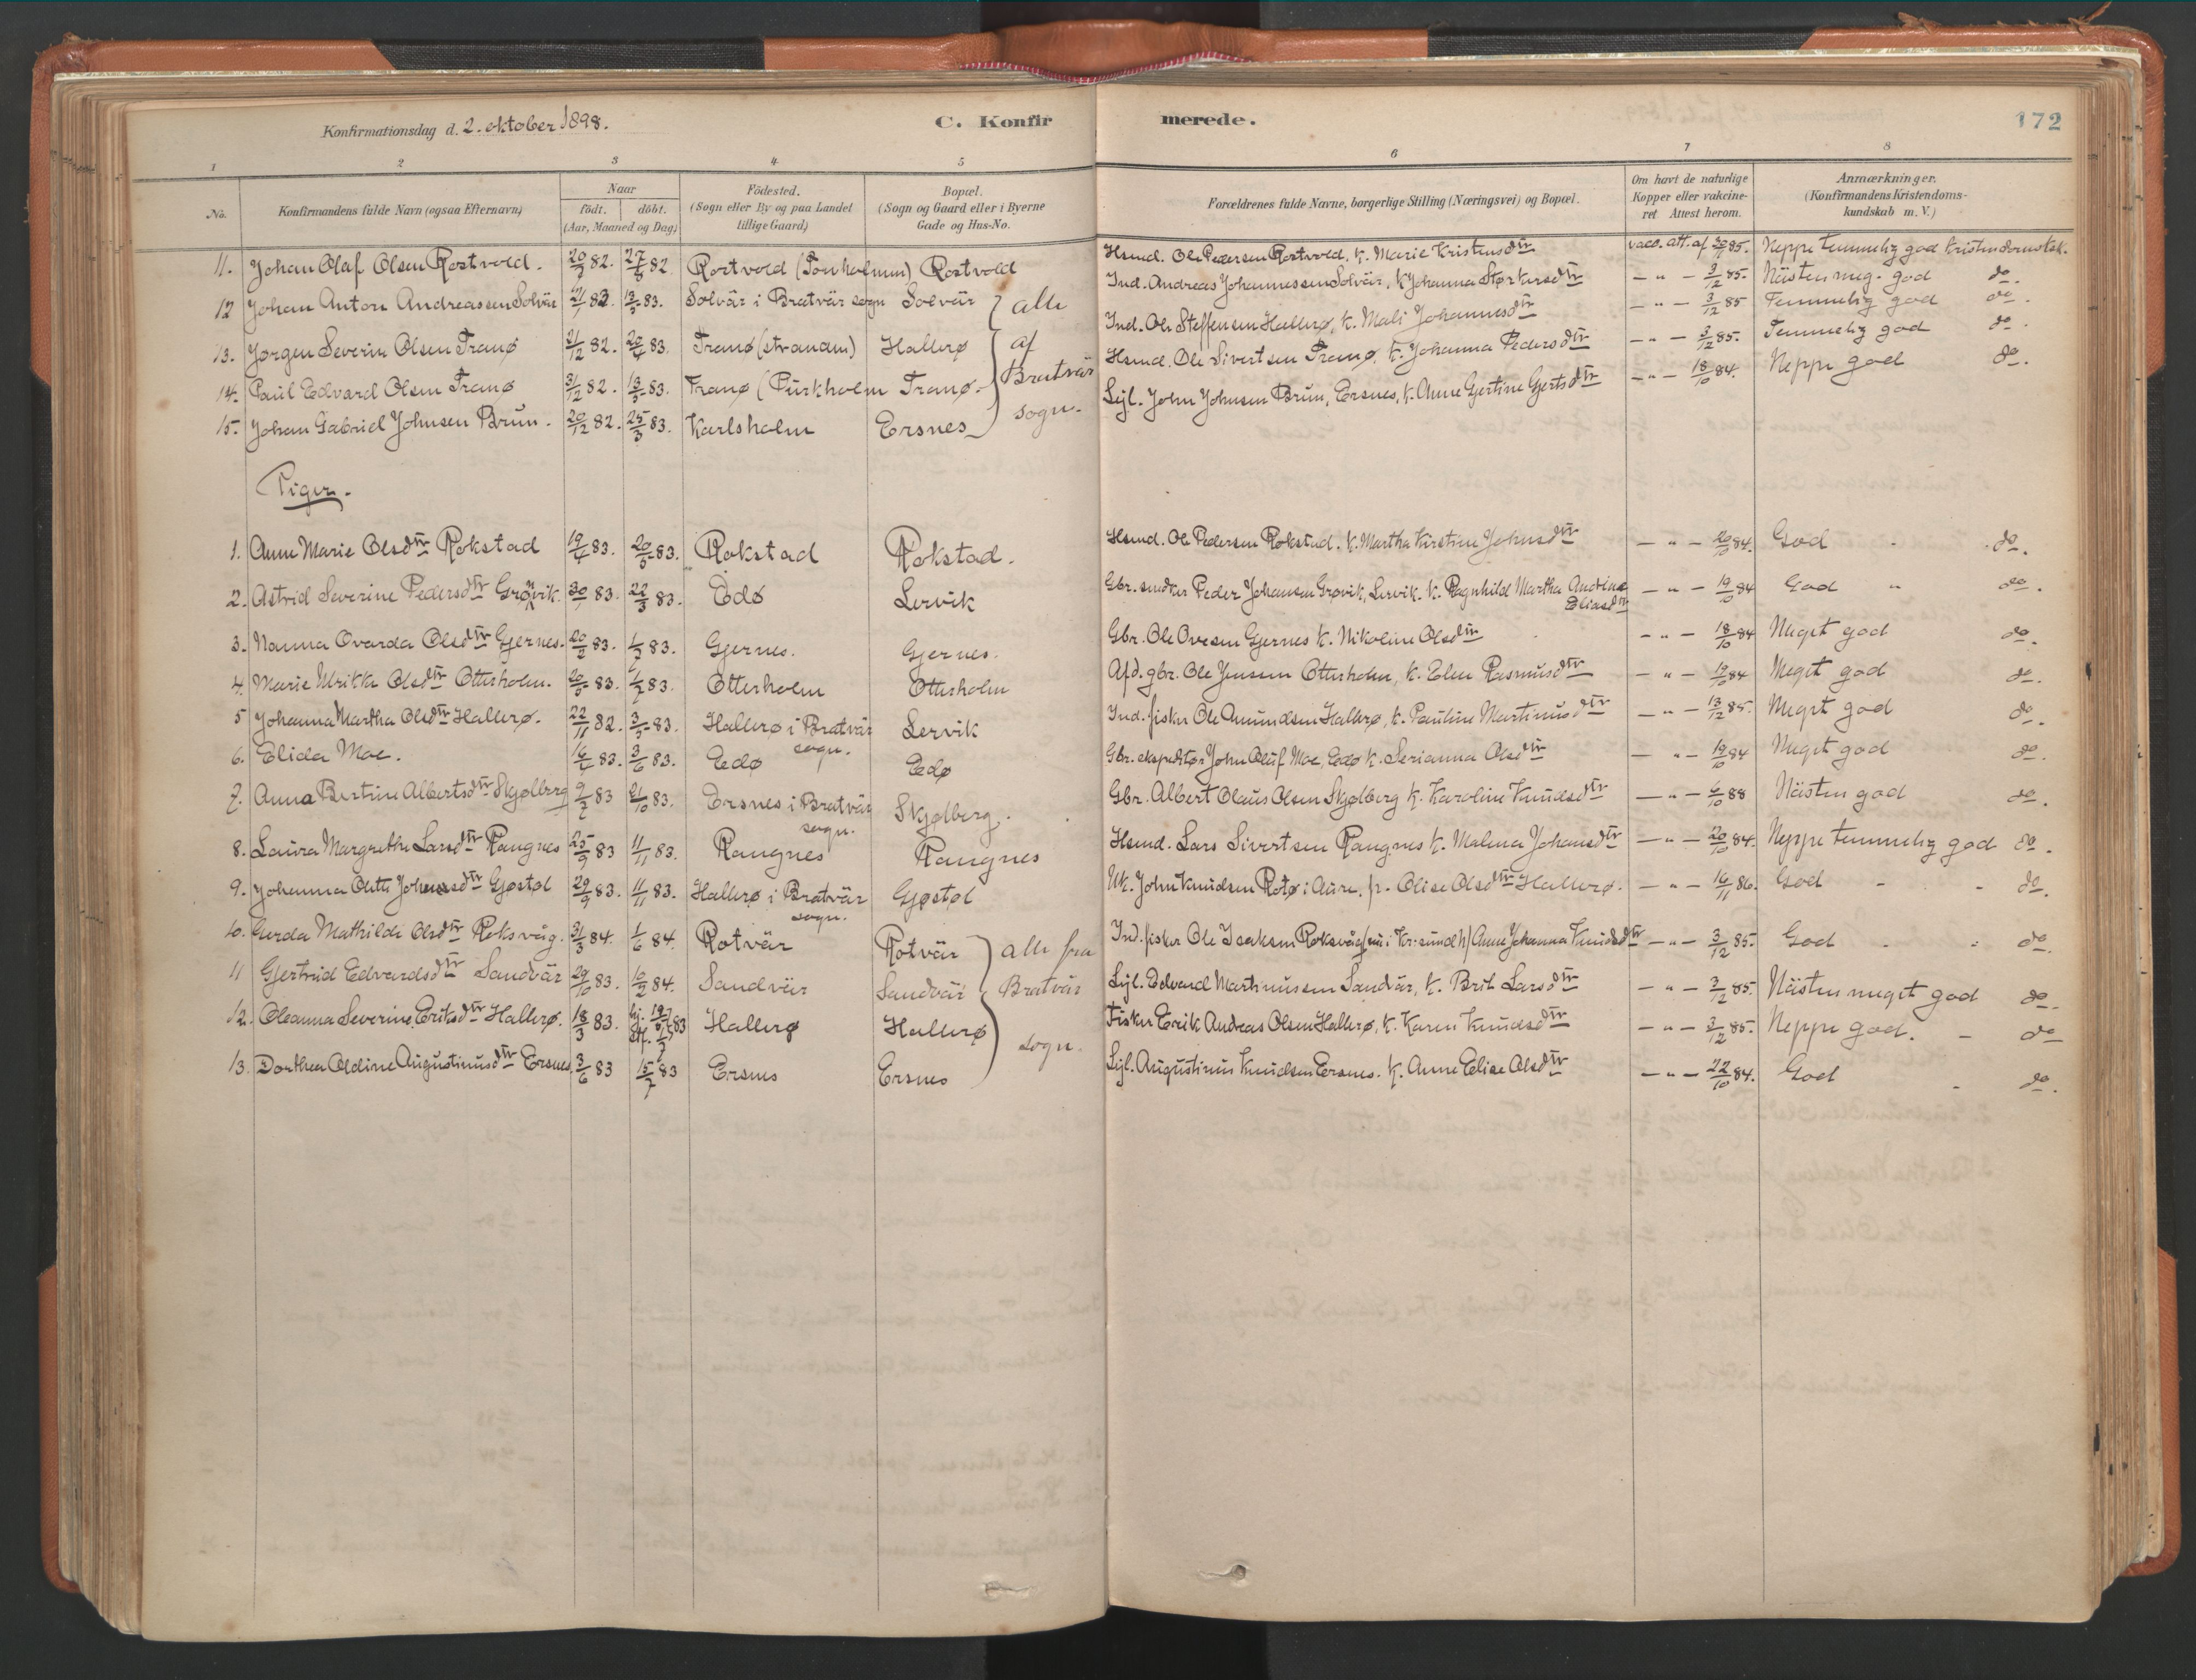 Konfirmationsdag d. 2. oktober 1898.
C. Konfir
merede.
172
1 2 3 4 5 6 7 8
No.
Konfirmandens fulde Navn (ogsaa Efternavn)
Naar
födt. döbt.
(Aar, Maaned og Dag)
Födested.
(Sogn eller By og paa Landet
tillige Gaard)
Bopæl.
(Sogn og Gaard eller i Byerne
Gade og Hus-No.
Forældrenes fulde Navne, borgerlige Stilling (Næringsvei) og Bopæl.
Om havt de naturlige
Kopper eller vakcine-
ret Attest herom.
Anmærkninger.
(Konfirmandens Kristendoms-
kundskab m. V.)
11. Johan Olaf Olsen Rostvold. 82. 82. Rostvold Rostvold Hsmd. Ole Pedersen Rostvold, k. Marie Kristensdtr vacc. att. af 85. Neppe temmelig god
12 Johan Anton Andreassen Solvär 83. 13/5 83. Solvär i Bratvär sogn Solvär Ind. Andreas Johannessen Solvär, k. Johanna Størkersdtr — " — 3/12 85. Nästen meg. god do.
13. Jørgen Severin Olsen Tranø 31/12 82. 20/4 83. Tranø (stranden) Hallerø Ind. Ole Steffensen Hallerø, k. Mali Johannesdtr — " — 3/12 85 Temmelig god do.
14. Paul Edvard Olsen Tranø 31/12 82. 13/5 83. Tranø (Purkholm Tranø. Hsmd. Ole Sivertsen Tranø, k. Johanna Pedersdtr — " — 3/12 85. Temmelig god do.
15. Johan Gabriel Johnsen Brun. 20/12 82. 25/3 83. Karlsholm Ersnes Sejl. John Johnsen Brun, Ersnes, k. Anne Gjertine Gjertsdtr — " — 18/10 84. Neppe god do.
alle
af
Bratvär
sogn.
Piger.
1. Anne Marie Olsdtr Rokstad 19/4 83. 20/5 83. Rokstad Rokstad. Hsmd. Ole Pedersen Rokstad. k. Martha Kirstine Johnsdtr — " — 20/10 84. God do.
2. Astrid Severine Pedersdtr Grøvik. 83. 22/3 83. Edø Lervik Gbr. smdker Peder Johansen Grøvik, Lervik. k. Ragnhild Martha Andrine — " — 19/10 84 God " do.
Eliasdtr
3. Nanna Ovarda Olsdtr Gjernes. 20/2 83. 1/7 83. Gjernes. Gjernes. Gbr. Ole Ovesen Gjernes k. Nikoline Olsdtr — " — 18/10 84 Meget god do.
4. Marie Ulrikke Olsdtr Otterholm. 20/5 83. 1/7 83. Otterholm Otterholm Afd. gbr. Ole Jensen Otterholm, k. Elen Rasmusdtr — " — 19/10 84 Meget god do.
5 Johanna Martha Olsdtr Hallerø. 22/11 82. 3/5 83. Hallerø i Bratvär Lervik Ind. fisker Ole Amundsen Hallerø, k. Pauline Martinusdtr — " — 13/12 85. Meget god do.
sogn.
6. Elida Moe. 83. 3/6 83. Edø Edø Gbr. ekspeditør John Oluf Moe, Edø k. Serianna Olsdtr — " — 19/10 84 Meget god do.
7. Anna Bertine Albertsdtr Skjølberg 9/7 83 21/10 83. Ersnes i Bratvär Skjølberg. Gbr. Albert Olaus Olsen Skjølberg k. Karoline Knudsdtr — " — 6/10 88 Nästen god do.
sogn.
8. Laura Margrethe Larsdtr Rangnes 25/9 83 11/11 83. Rangnes Rangnes Hsmd. Lars Sivertsen Rangnes k. Malena Johansdtr — " — 20/10 84. Neppe temmelig god do.
9. Johanna Olette Johnsdtr Gjøstøl 29/9 83. 11/11 83. Hallerø i Bratvär Gjøstøl Uk. John Knudsen Rotø i Aure. p. Elise Olsdtr Hallerø. — " — 16/11 86. God do.
sogn.
10. Gerda Mathilde Olsdtr Roksvåg. 31/3 84. 1/6 84. Rotvär Rotvär Ind. fisker Ole Isaksen Roksvåg (nu i Kr.sund N) Anne Johanna Knudsdtr — " — 3/12 85. God do.
11 Gjertrud Edvardsdtr Sandvär 29/10 83. 10/2 84. Sandvär Sandvär Sejl. Edvard Martinussen Sandvär, k. Brit Larsdtr — " — 3/12 85. Nästen meget god do.
12. Oleanna Severine Eriksdtr Hallerø. 18/3 83. hj. 83 Hallerø Hallerø Fisker Erik Andreas Olsen Hallerø, k. Karen Knudsdtr — " — 3/12 85. Neppe god. do
13. Dorthea Oldine Augustinusdtr Ersnes 3/6 83 15/7 83 Ersnes Ersnes Sejl. Augustinus Knudsen Ersnes. k. Anne Elise Olsdtr — " — 22/10 84. God do.
alle fra
Bratvär
sogn.